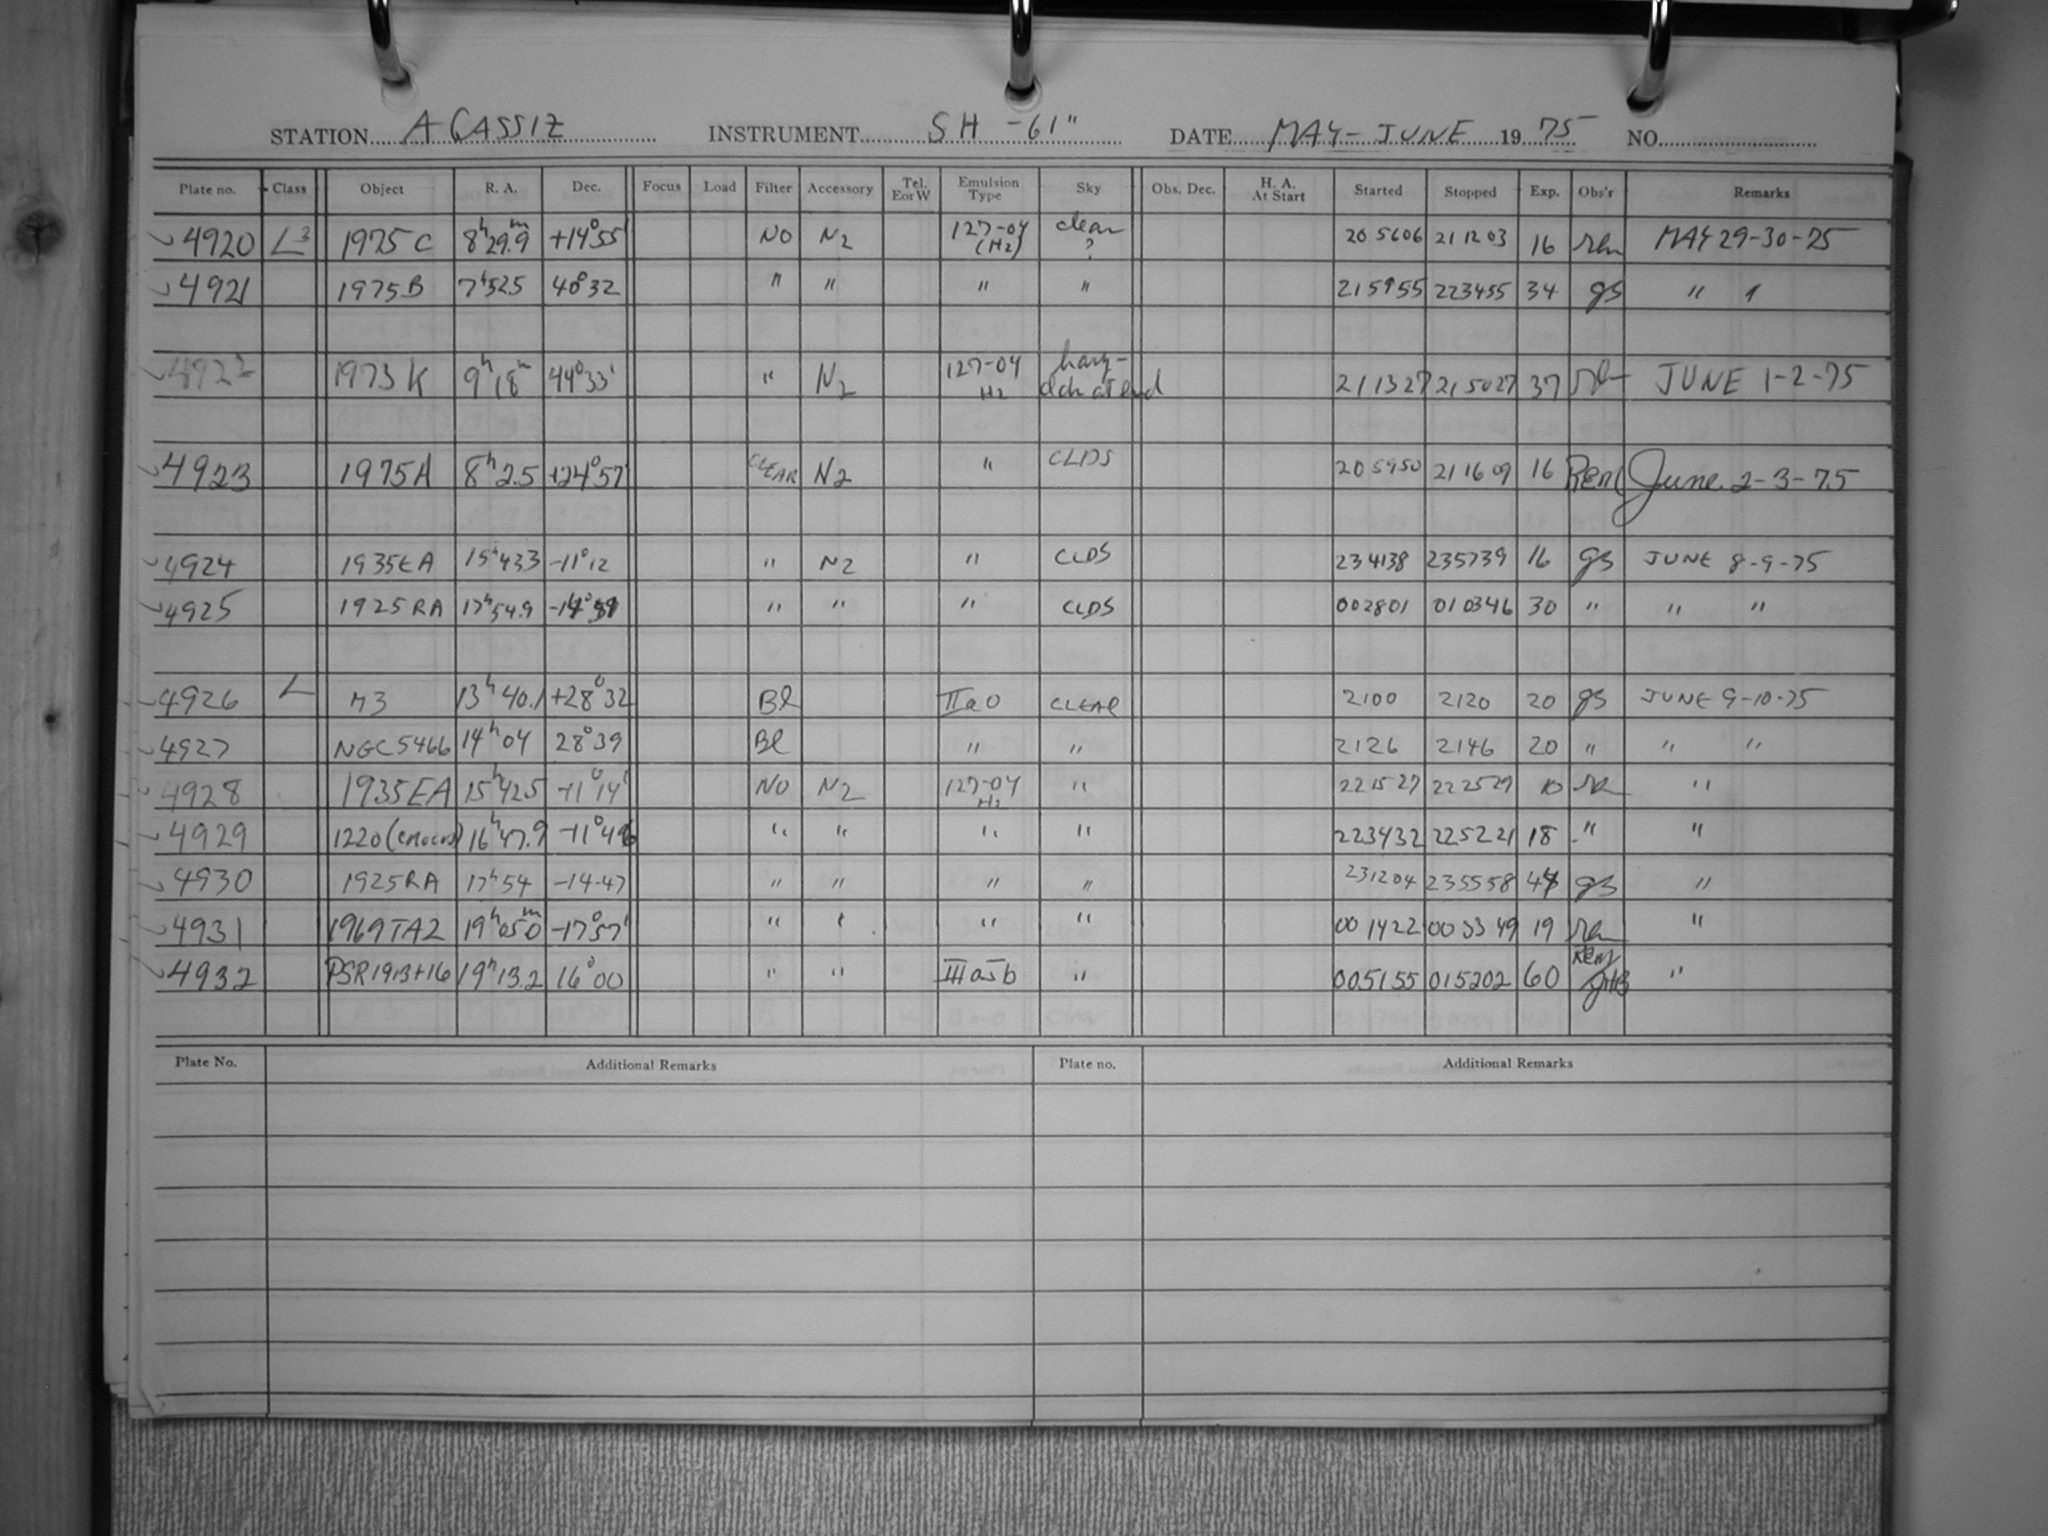 STATION AGASSIZ INSTRUMENT SH -61" DATE MAY-JUNE 1975 NO.
Plate no. Class Object R. A. Dec. Focus Load Filter Accessory Tel. E or W Emulsion Type Sky Obs. Dec. H. A. At Start Started Stopped Exp. Obs'r Remarks
4920 L3 1975 C 8h29.9m +14°55' NO N2 127-04 (H2) clear ? 205606 211203 16 rem MAY 29-30-75
4921 1975B 7h52.5 40°32 " " " " 215955 223455 34 gs " "
4922 1973 K 9h18m 44°33' " N2 127-04 H2 hazy- at end 211327 215027 37 JUNE 1-2-75
4923 1975A 8h2.5 +24°57' CLEAR N2 " CLDS 205950 211609 16 Rem June 2-3-75
4924 1935EA 15h43.3 -11°12 " N2 " CLDS 234138 235739 16 gs JUNE 8-9-75
4925 1925RA 17h54.9 " " " CLDS 002801 010346 30 " " "
4926 L M3 13h40.1 +28°32 Bl IIaO CLEAR 2100 2120 20 gs JUNE 9-10-75
4927 NGC5466 14h04 28°39 Bl " " 2126 2146 20 " " "
4928 1935EA 15h42.5 -11°14' NO N2 127-04 H2 " 221527 222529 10 "
4929 1220 (Crocus) 16h47.9 -11°46 " " " " 223432 225221 18 " "
4930 1925RA 17h54 -14-47 " " " " 231204 235558 44 gs "
4931 1969TA2 19h05.0m -17°57' " " " " 001422 003349 19 rem "
4932 PSR1913+16 19h13.2 16°00 " " IIIaJb " 005155 015202 60 Rem JHB "
Plate No. Additional Remarks Plate no. Additional Remarks